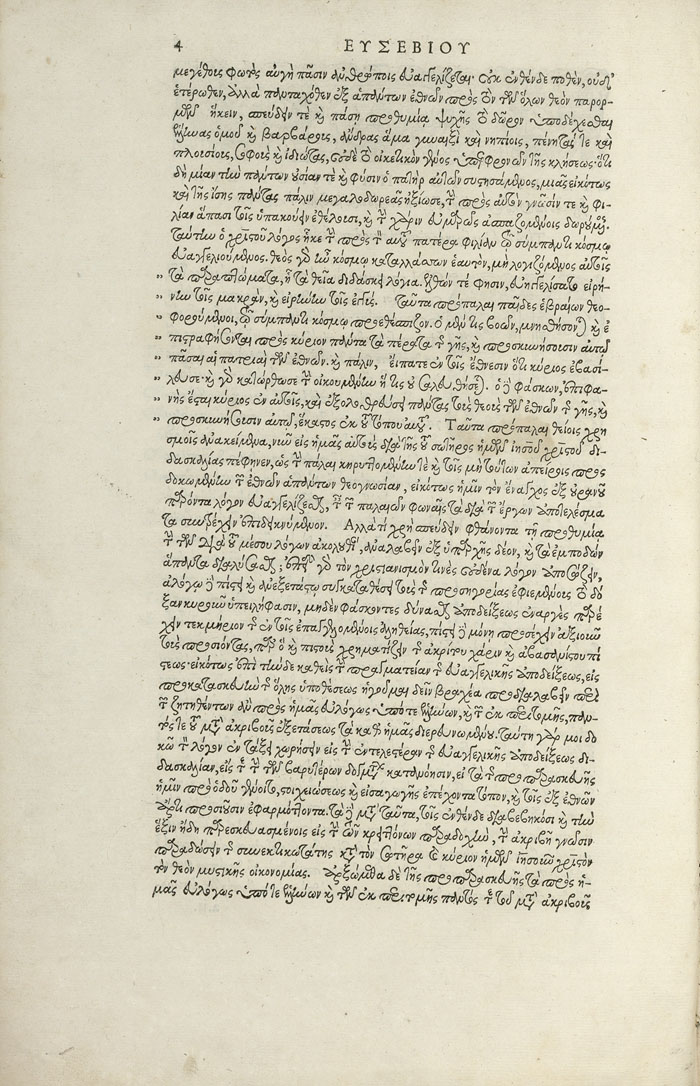 4 ΕΥΣΕΒΙΟΥ
μεγέθοις φωτὸς αὐγὴ πᾶσιν ἀνθρώποις εὐαγγελίζεται· οὐκ ἐνθένδε ποθὲν, οὐδ'
ἑτέρωθεν, ἀλλὰ πανταχόθεν ἐξ ἁπάντων ἐθνῶν πρὸς τὸν τῶν ὅλων θεὸν παρορ-
μᾶν ἥκειν, σπεύδειν τὲ καὶ πάσῃ προθυμίᾳ ψυχῆς τὸ δῶρον ὑποδέχεσθαι
ἕλληνας ὁμοῦ καὶ βαρβάροις, ἄνδρας ἅμα γυναιξὶ καὶ νηπίοις, πένητάς τε καὶ
πλουσίοις, σοφοὺς καὶ ἰδιώτας, οὐδὲ τὸ οἰκετικὸν γένος ὑπερφρονῶν τῆς κλήσεως· ὅτι
δὴ μίαν τῶν πάντων οὐσίαν τὲ καὶ φύσιν ὁ πατὴρ αὐτῶν συστησάμενος, μιᾶς εἰκότως
καὶ τῆς ἴσης πάντας πάλιν μεγαλοδωρεᾶς ἠξίωσε, τὴν πρὸς αὐτὸν γνῶσίν τε καὶ φι-
λίαν ἅπασι τοῖς ὑπακούειν ἐθέλουσι, καὶ τὴν χάριν εὐμενῶς ἀσπαζομένοις δωρούμενος.
ταύτην ὁ χριστοῦ λόγος ἧκε τὴν πρὸς τὸν αὐτοῦ πατέρα φιλίαν τῷ σύμπαντι κόσμῳ
εὐαγγελιούμενος. θεὸς γὰρ ἦν κόσμον καταλλάσσων ἑαυτῷ, μὴ λογιζόμενος αὐτοῖς
τὰ παραπτώματα, ᾗ τὰ θεῖα διδάσκει λόγια. ἐλθών τέ φησιν, εὐηγγελίσατο εἰρή-
νην τοῖς μακρὰν, καὶ εἰρήνην τοῖς ἐγγύς. Ταῦτα πρόπαλαι παῖδες ἑβραίων θεο-
φορούμενοι, τῷ σύμπαντι κόσμῳ προεθέσπιζον. ὁ μέν τις βοῶν, μνησθήσονται καὶ ἐ-
πιστραφήσονται πρὸς κύριον πάντα τὰ πέρατα τῆς γῆς, καὶ προσκυνήσουσιν αὐτῷ
πᾶσαι αἱ πατριαὶ τῶν ἐθνῶν. καὶ πάλιν, εἴπατε ἐν τοῖς ἔθνεσιν ὅτι κύριος ἐβασί-
λευσε· καὶ γὰρ κατώρθωσε τὴν οἰκουμένην ἥτις οὐ σαλευθήσεται. ὁ δὲ φάσκων, ἐπιφα-
νὴς ἔσται κύριος ἐν αὐτοῖς, καὶ ἐξολοθρεύσει πάντας τοὺς θεοὺς τῶν ἐθνῶν τῆς γῆς, καὶ
προσκυνήσουσιν αὐτῷ, ἕκαστος ἐκ τοῦ τόπου αὐτοῦ. Ταῦτα πρόπαλαι θείοις χρη
σμοῖς ἀνακείμενα, νῦν εἰς ἡμᾶς αὐτοὺς διὰ τῆς τοῦ σωτῆρος ἡμῶν ἰησοῦ χριστοῦ δι-
δασκαλίας πέφηνεν, ὡς τὴν πάλαι κηρυττομένην τε καὶ τοῖς μὴ τούτων ἀπείροις προσ
δοκωμένην τῶν ἐθνῶν ἁπάντων θεογνωσίαν, εἰκότως ἡμῖν τὸν ἔναγχος ἐξ οὐρανοῦ
παρόντα λόγον εὐαγγελίζεσθαι, ταῖς τῶν παλαιῶν φωναῖς τὰ διὰ τῶν ἔργων ἀποτελέσμα
τα συντρέχειν ἐπιδεικνύμενον. Ἀλλὰ τί χρὴ σπεύδειν φθάνοντα τῇ προθυμίᾳ
τὴν τῶν διὰ τοῦ μέσου λόγων ἀκολουθίαν, ἀναλαβεῖν ἐξ ὑπαρχῆς δέον, καὶ τὰ ἐμποδὼν
ἅπαντα διαλύσασθαι; ἐπεὶ γὰρ τὸν χριστιανισμόν τινες οὐδένα λόγον ἀποσώζειν,
ἀλόγῳ δὲ πίστει καὶ ἀνεξετάστῳ συγκαταθέσει τοὺς τῆς προσηγορίας ἐφιεμένους τὸ δό
ξαν κυροῦν ὑπειλήφασιν, μηδὲν φάσκοντες δύνασθαι ἀποδείξεως ἐναργὲς παρέ
χειν τεκμήριον τῆς ἐν τοῖς ἐπαγγελλομένοις ἀληθείας, πίστει δὲ μόνῃ προσέχειν ἀξιοῦν
τοὺς προσιόντας, παρ' ὃ καὶ πιστοὺς χρηματίζειν τῆς ἀκρίτου χάριν καὶ ἀβασανίστου πί
στεως· εἰκότως ἐπὶ τήνδε καθεὶς τὴν πραγματείαν τῆς εὐαγγελικῆς ἀποδείξεως, εἰς
προκατασκευὴν τῆς ὅλης ὑποθέσεως ἡγοῦμαι δεῖν βραχέα προδιαλαβεῖν περὶ
τῶν ζητηθέντων ἂν πρὸς ἡμᾶς εὐλόγως ὑπό τε ἑλλήνων, καὶ τῶν ἐκ περιτομῆς, παν-
τός τε τοῦ μετ' ἀκριβοῦς ἐξετάσεως τὰ καθ' ἡμᾶς διερευνωμένου. ταύτῃ γάρ μοι δο
κῶ τὸν λόγον ἐν τάξει χωρήσειν εἰς τὴν ἐντελεστέραν τῆς εὐαγγελικῆς ἀποδείξεως δι-
δασκαλίαν, εἴς τε τὴν τῶν βαθυτέρων δογμάτων κατανόησιν, εἰ τὰ τῆς προπαρασκευῆς
ἡμῖν πρὸ ὁδοῦ γένοιτο, στοιχειώσεως καὶ εἰσαγωγῆς ἐπέχοντα τόπον, καὶ τοῖς ἐξ ἐθνῶν
ἄρτι προσιοῦσιν ἐφαρμόττοντα. τὰ δὲ μετὰ ταῦτα, τοῖς ἐνθένδε διαβεβηκόσι καὶ τὴν
ἕξιν ἤδη παρεσκευασμένοις εἰς τὴν τῶν κρειττόνων παραδοχὴν, τὴν ἀκριβῆ γνῶσιν
παραδώσει τῆς συνεκτικωτάτης κατὰ τὸν σωτῆρα καὶ κύριον ἡμῶν ἰησοῦν χριστὸν
τὸν θεὸν μυστικῆς οἰκονομίας. Ἀρξώμεθα δὲ τῆς προπαρασκευῆς τὰ πρὸς ἡ-
μᾶς εὐλόγως ὑπό τε ἑλλήνων καὶ τῶν ἐκ περιτομῆς παντὸς τε τοῦ μετ' ἀκριβοῦς